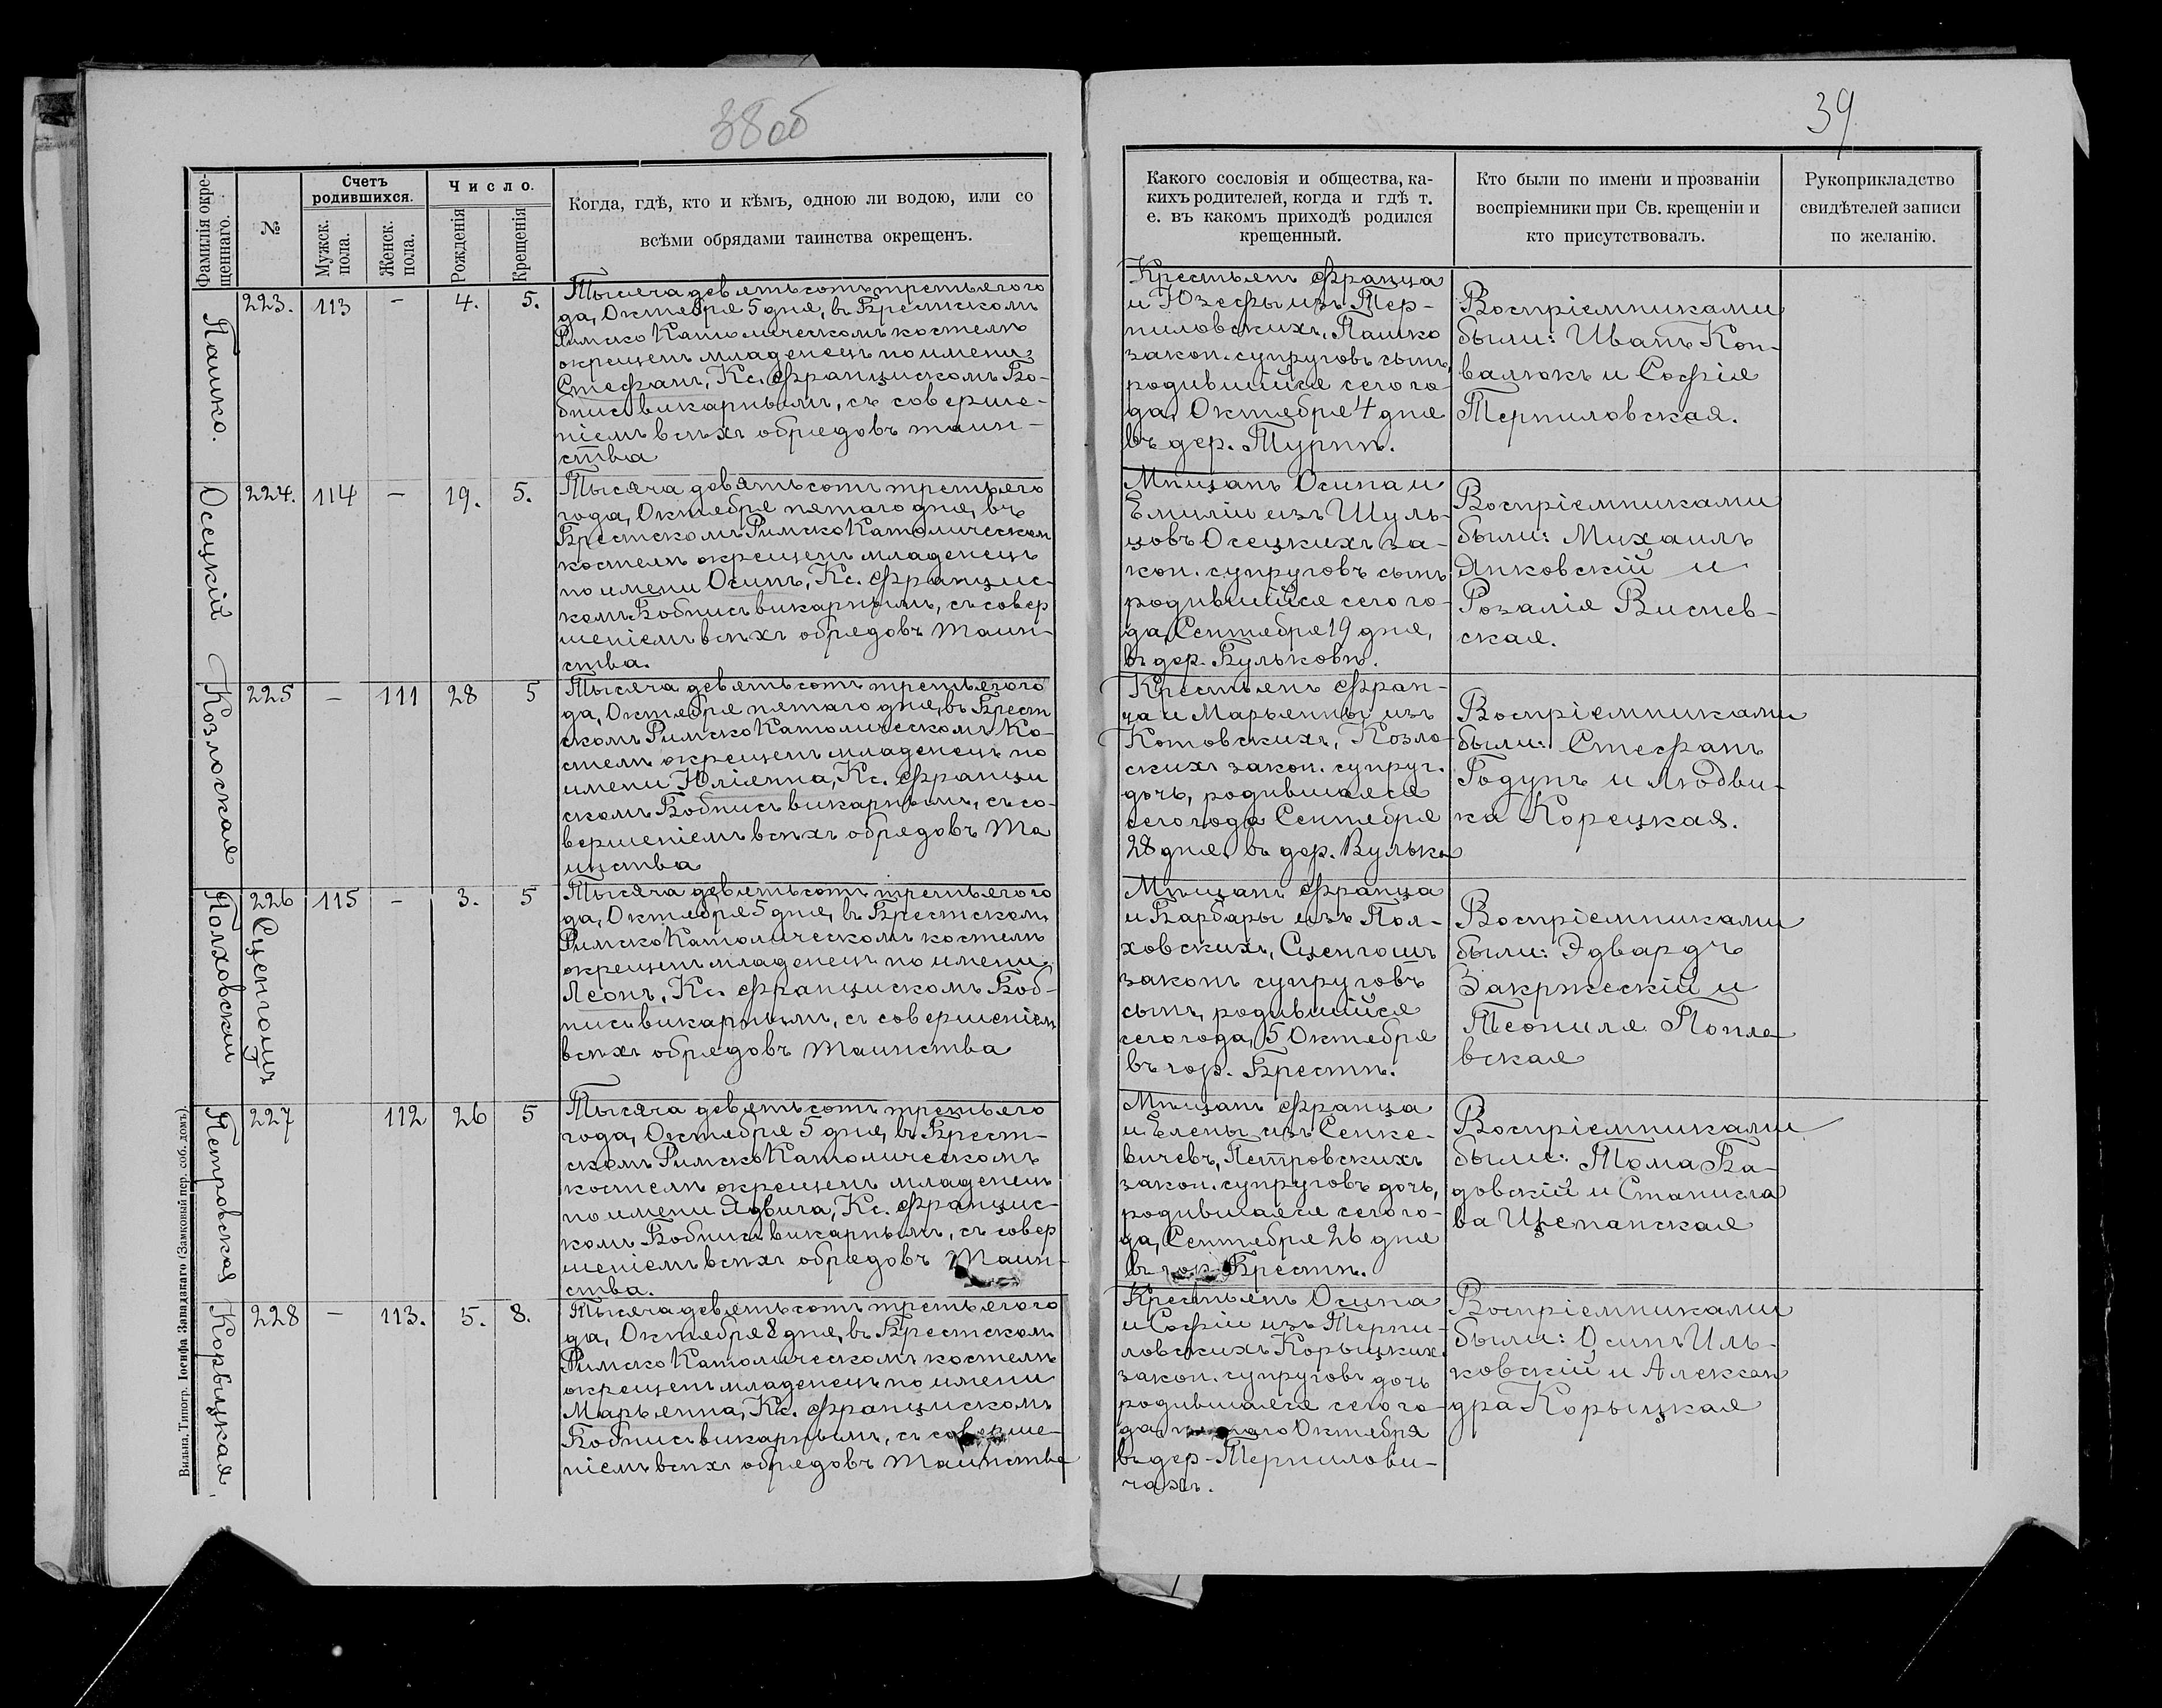 38об
39
Фамилія окре-
щеннаго.
№
Счетъ
родившихся.
Мужск.
пола.
Женск.
пола.
Число.
Рожденія
Крещенія
Когда, гдѣ, кто и кѣмъ, одною ли водою, или со
всѣми обрядами таинства окрещенъ.
Какого сословія и общества, ка-
кихъ родителей, когда и гдѣ т.
е. въ какомъ приходѣ родился
крещенный.
Кто были по имени и прозваніи
воспріемники при Св. крещеніи и
кто присутствовалъ.
Рукоприкладство
свидѣтелей записи
по желанію.
Пашко.
223. 113 — 4. 5.
Тысяча девятьсотъ третьяго го
да, Октября 5 дня, въ Брестскомъ
Римско Католическомъ костелѣ
окрещенъ младенецъ по имени
Стефанъ, Кс. Францискомъ Бо-
бнисъ викарнымъ, съ соверше-
ніемъ всѣхъ обрядовъ таин-
ства
Крестьянъ Франца
и Юзефы изъ Тер-
пиловскихъ, Пашко
закон. супруговъ сынъ,
родившійся сего го-
да, Октября 4 дня
въ дер. Турнѣ.
Воспріемниками
были: Иванъ Кон-
валюкъ и Софія
Терпиловская.
Осецкій
224. 114 — 19. 5.
Тысяча девятьсотъ третьяго
года, Октября пятаго дня, въ
Брестскомъ Римско Католическом
костелѣ окрещенъ младенецъ
по имени Осипъ, Кс. Францис-
комъ Бобнисъ викарнымъ, съ совер
шеніемъ всѣхъ обрядовъ Таин-
ства.
Мѣщанъ Осипа и
Емиліи изъ Шуль-
цовъ Осецкихъ за-
кон. супруговъ сынъ
родившійся сего го-
да, Сентября 19 дня,
въ дер. Бульковѣ.
Воспріемниками
были: Михаилъ
Янковскій и
Розалія Виснев-
ская.
Козлоская
225 — 111 28 5
Тысяча девятьсотъ третьяго го
да, Октября пятаго дня, въ Брест
скомъ Римско Католическомъ Ко-
стелѣ окрещенъ младенецъ по
имени Юліянна, Кс. Францы
скомъ Бобнисъ викарнымъ, съ со-
вершеніемъ всѣхъ обрядовъ Та
инства
Крестьянъ Фран-
ца и Марьянны изъ
Котовскихъ, Козло-
скихъ закон. супруг.
дочь, родившаяся
сего года Сентября
28 дня, въ дер. Вулька
Воспріемниками
были: Стефанъ
Годунъ и Людви-
ка Корецкая.
Полховскій
Сценгошъ
226 115 — 3. 5
Тысяча девятьсотъ третьяго го
да, Октября 5 дня, въ Брестскомъ
Римско Католическомъ костелѣ
окрещенъ младенецъ по имени
Леонъ, Кс. Францискомъ Боб-
нисъ викарнымъ, съ совершеніем
всѣхъ обрядовъ Таинства
Мѣщанъ Франца
и Барбары изъ Пол-
ховскихъ, Сценгошъ
законъ супруговъ
сынъ, родившійся
сего года, 5 Октября
въ гор. Брестѣ.
Воспріемниками
были: Эдвардъ
Закржескій и
Теопиля Попла
вская
Петровская
227 112 26 5
Тысяча девятьсотъ третьяго
года, Октября 5 дня, въ Брест-
скомъ Римско Католическомъ
костелѣ окрещенъ младенецъ
по имени Ядвига, Кс. Францис-
комъ Бобнисъ викарнымъ, съ совер
шеніемъ всѣхъ обрядовъ Таин-
ства.
Мѣщанъ Франца
и Елены изъ Сенке-
вичевъ, Петровскихъ
закон. супруговъ дочь,
родившаяся сего го-
да, Сентября 26 дня
въ гор. Брестѣ.
Воспріемниками
были: Тома Ба-
довскій и Станисла
ва Щепанская
Корыцкая
228 — 113. 5. 8.
Тысяча девятьсотъ третьяго го
да, Октября 8 дня, въ Брестском
Римско Католическомъ костелѣ
окрещенъ младенецъ по имени
Марьянна, Кс. Францискомъ
Бобнисъ викарнымъ, съ соверше-
ніемъ всѣхъ обрядовъ Таинства
Крестьянъ Осипа
и Софіи изъ Терпи-
ловскихъ Корыцких
закон. супруговъ дочь
родившаяся сего го-
да, пятаго Октября
въ дер. Терпилови-
чахъ.
Воспріемниками
были: Осипъ Иль-
ковскій и Алексан
дра Корыцкая
Вильна, Типогр. Іосифа Завадзкаго (Замковый пер. соб. домъ).